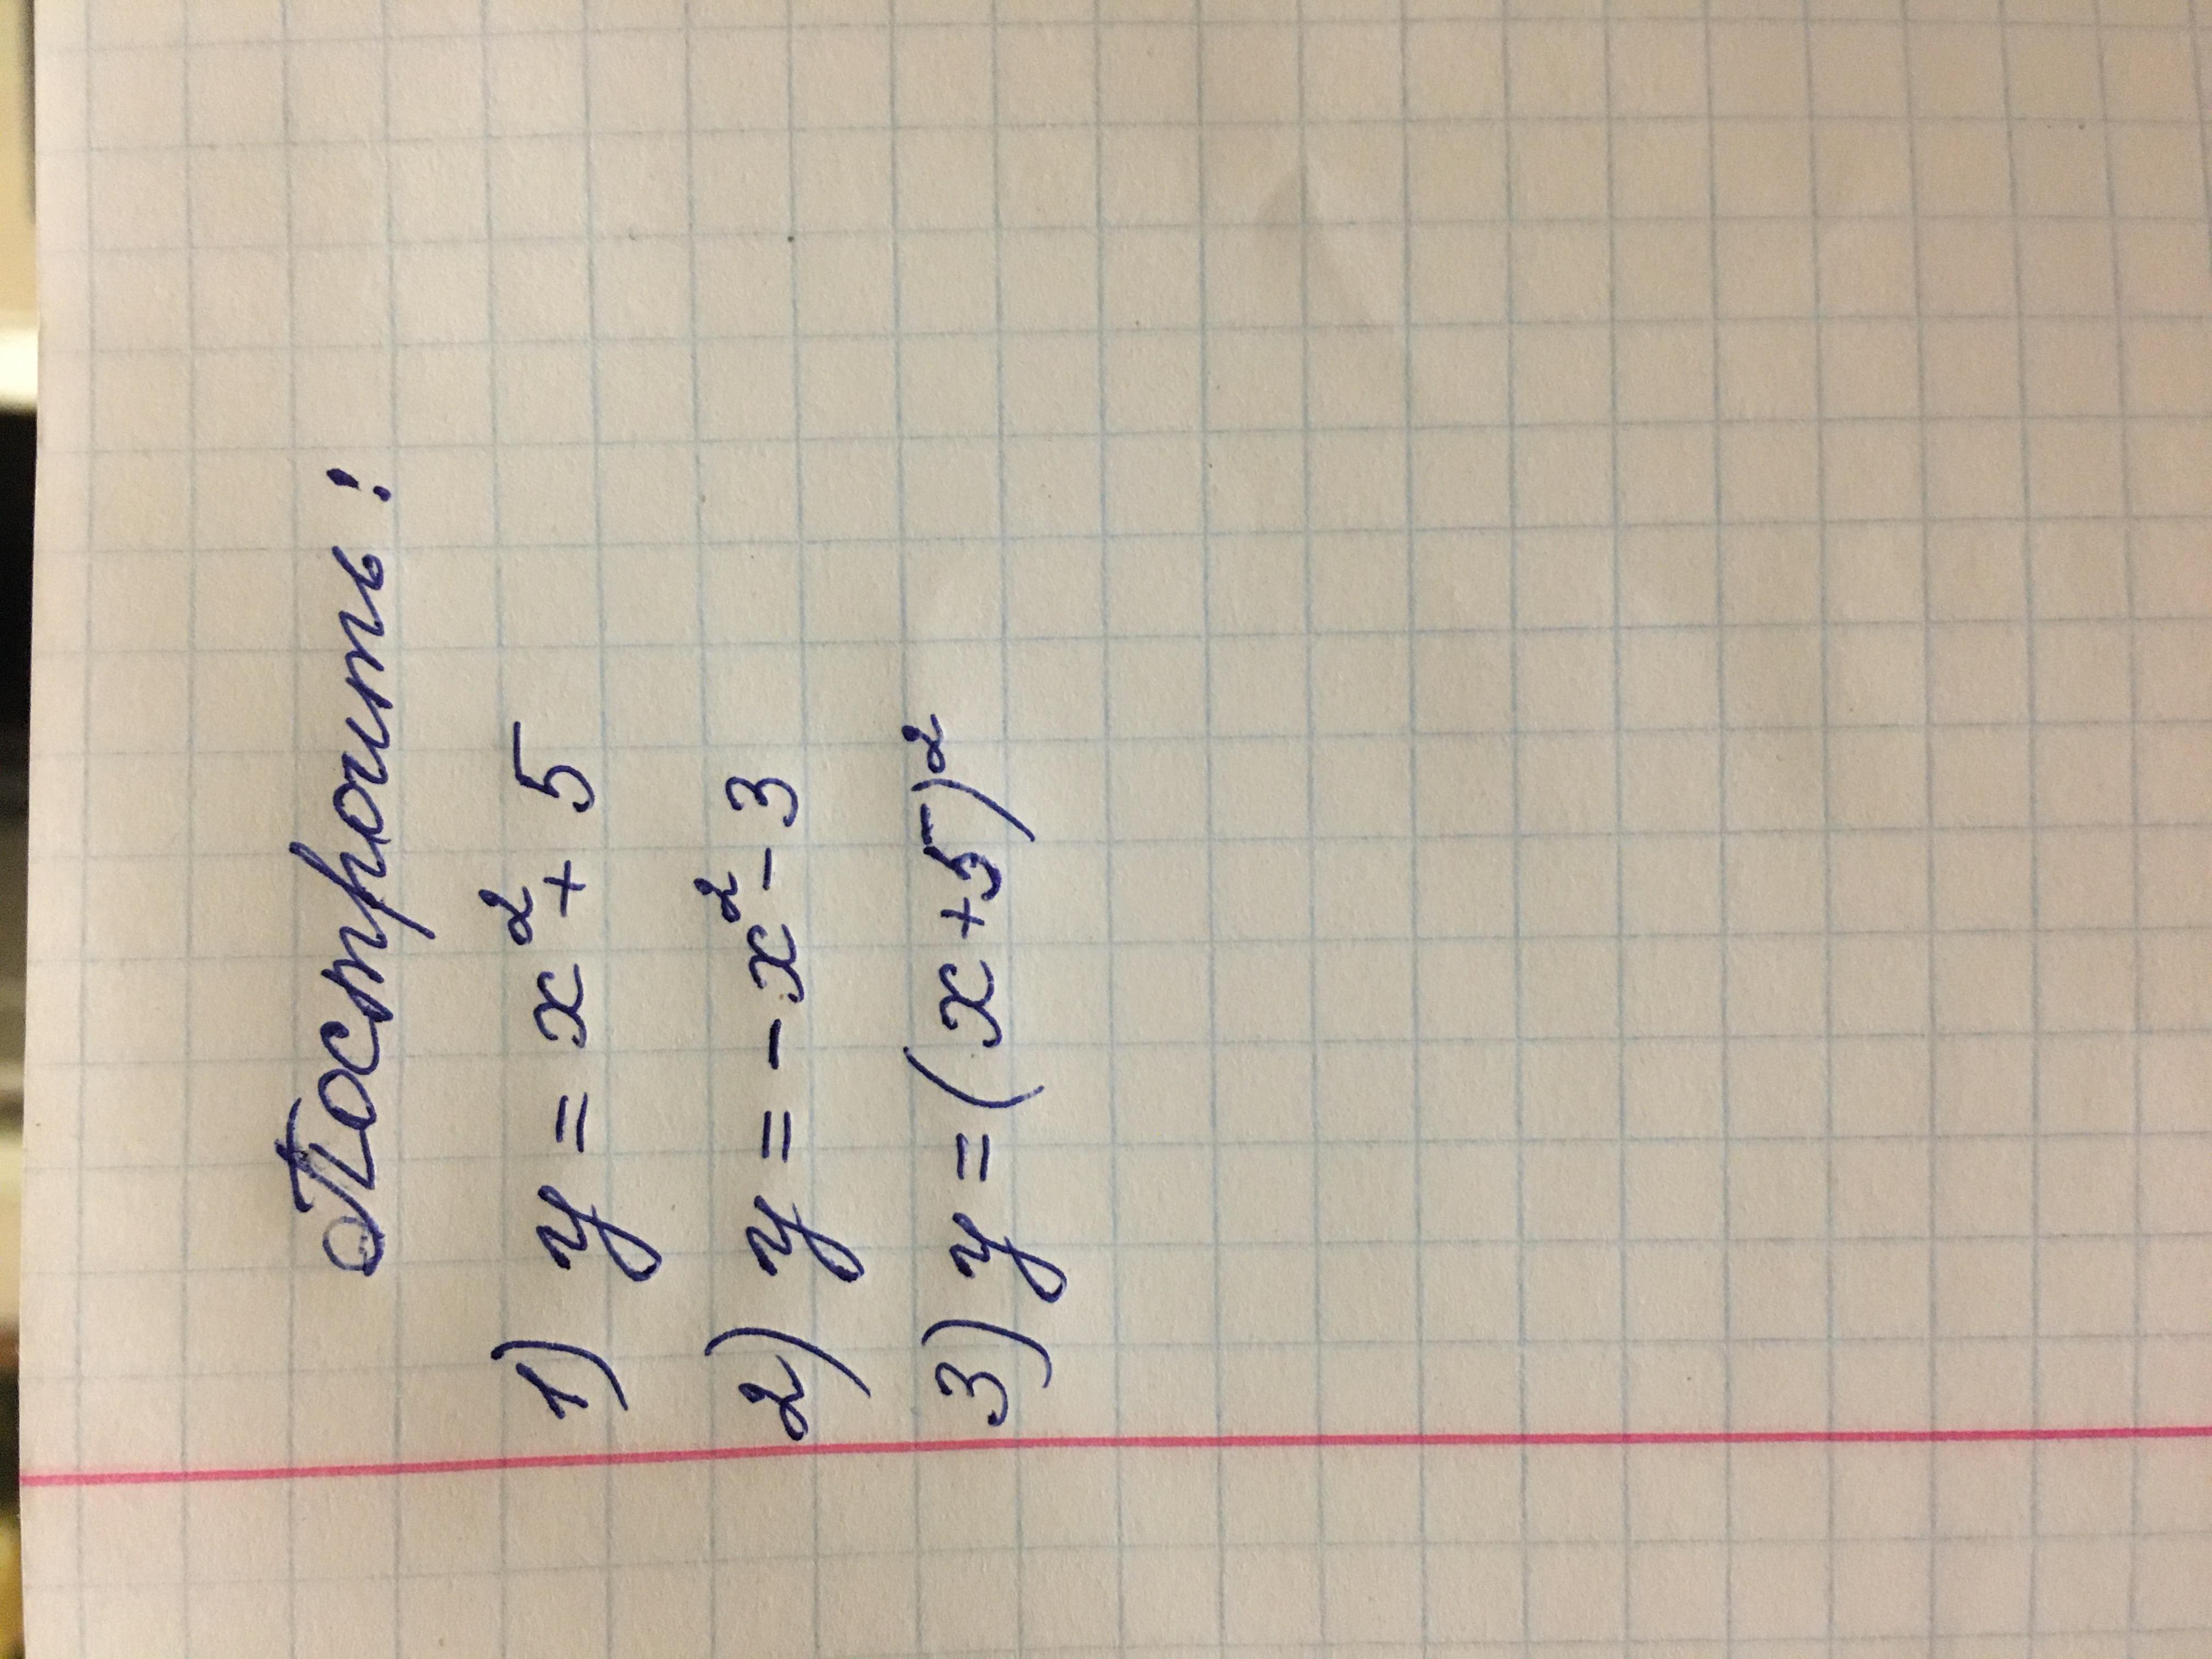 Построить:
1) y = x² + 5
2) y = - x² - 3
3) y = (x + 5)²